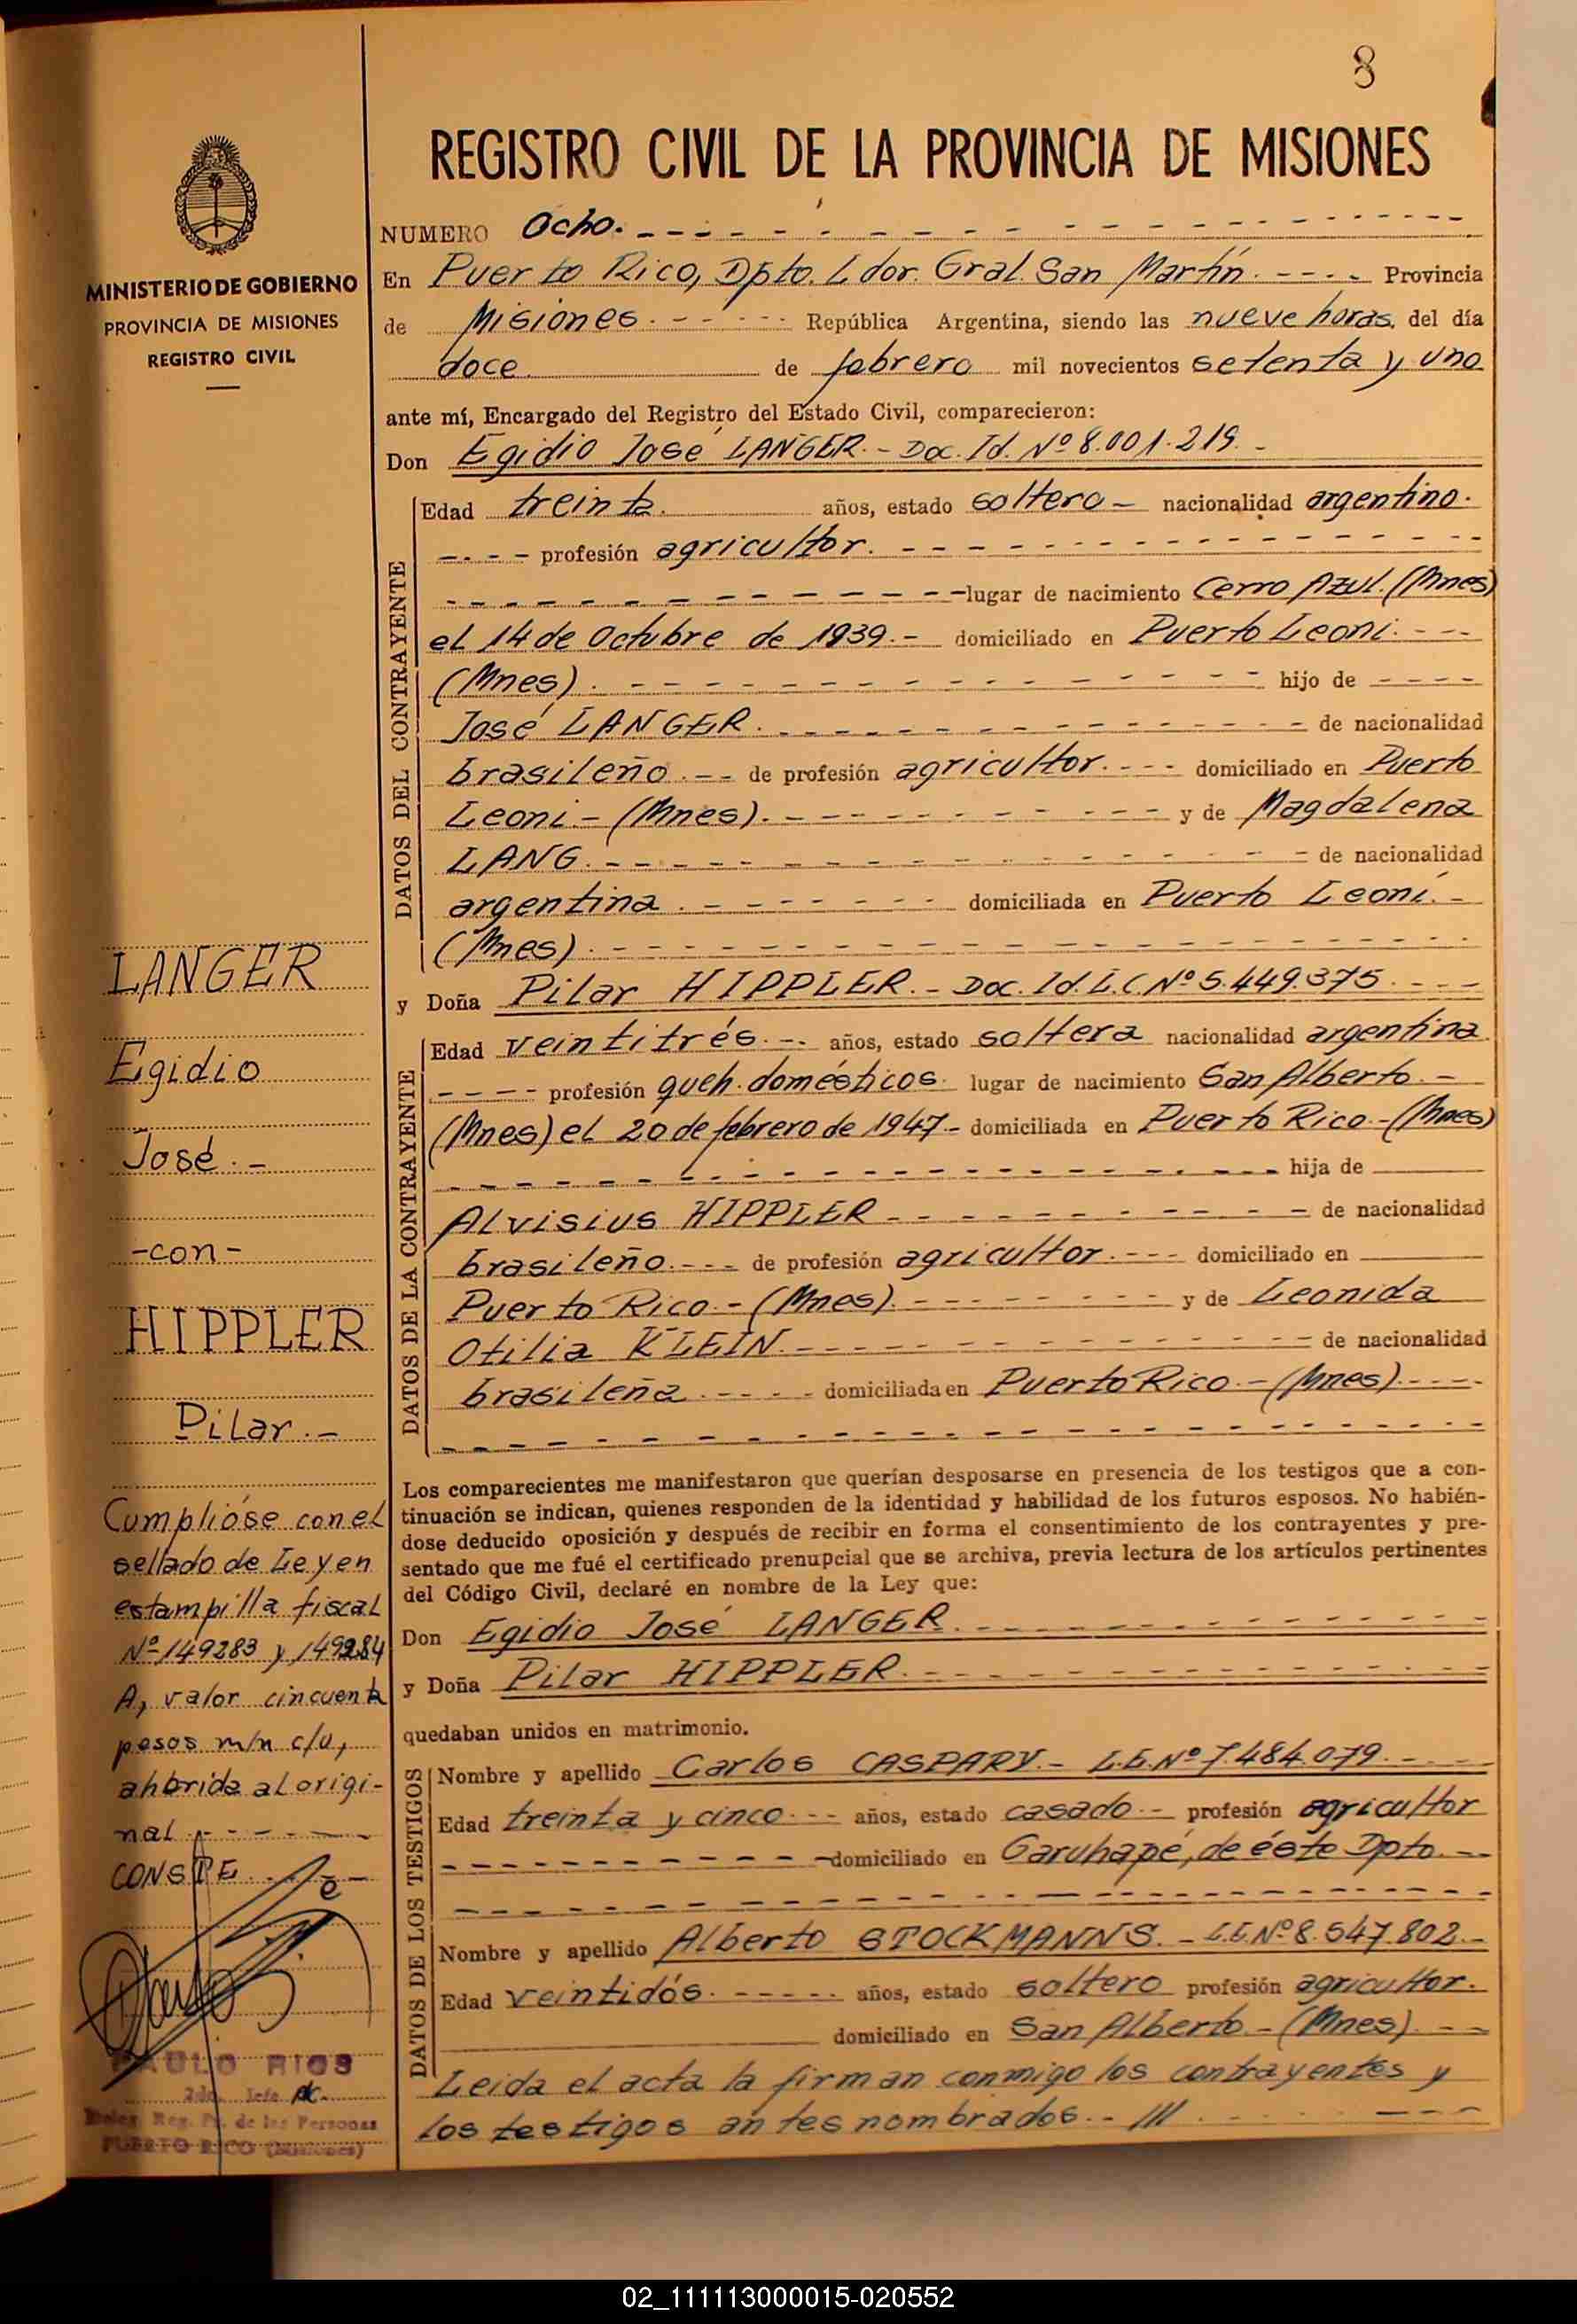 8
REGISTRO CIVIL DE LA PROVINCIA DE MISIONES
MINISTERIO DE GOBIERNO
PROVINCIA DE MISIONES
REGISTRO CIVIL
NUMERO Ocho.
En Puerto Rico, Dpto. Ldor. Gral. San Martín. Provincia
de Misiones. República Argentina, siendo las nueve horas, del día
doce de febrero mil novecientos setenta y uno
ante mí, Encargado del Registro del Estado Civil, comparecieron:
Don Egidio José LANGER.- Doc. Id. Nº 8.001.219.-
DATOS DEL CONTRAYENTE
Edad treinta. años, estado soltero - nacionalidad argentino.
profesión agricultor.
lugar de nacimiento Cerro Azul. (Mnes)
el 14 de Octubre de 1939.- domiciliado en Puerto Leoni.
(Mnes). hijo de
José LANGER. de nacionalidad
brasileño. de profesión agricultor. domiciliado en Puerto
Leoni - (Mnes). y de Magdalena
LANG. de nacionalidad
argentina. domiciliada en Puerto Leoni.-
(Mnes).
y Doña Pilar HIPPLER.- Doc. Id. L.C. Nº 5.449.375.
DATOS DE LA CONTRAYENTE
Edad veintitrés. años, estado soltera nacionalidad argentina.
profesión queh. domésticos. lugar de nacimiento San Alberto.-
(Mnes) el 20 de febrero de 1947.- domiciliada en Puerto Rico - (Mnes)
hija de
Alvisius HIPPLER de nacionalidad
brasileño. de profesión agricultor. domiciliado en
Puerto Rico.- (Mnes). y de Leonida
Otilia KLEIN. de nacionalidad
brasileña. domiciliada en Puerto Rico.- (Mnes).
Los comparecientes me manifestaron que querían desposarse en presencia de los testigos que a con-
tinuación se indican, quienes responden de la identidad y habilidad de los futuros esposos. No habién-
dose deducido oposición y después de recibir en forma el consentimiento de los contrayentes y pre-
sentado que me fué el certificado prenupcial que se archiva, previa lectura de los artículos pertinentes
del Código Civil, declaré en nombre de la Ley que:
Don Egidio José LANGER.
y Doña Pilar HIPPLER.
quedaban unidos en matrimonio.
DATOS DE LOS TESTIGOS
Nombre y apellido Carlos CASPARY.- L.E. Nº 7.484.079.
Edad treinta y cinco. años, estado casado.- profesión agricultor
domiciliado en Garuhapé, de éste Dpto.
Nombre y apellido Alberto STOCKMANNS.- L.E. Nº 8.547.802.-
Edad veintidós. años, estado soltero profesión agricultor.
domiciliado en San Alberto.- (Mnes).
Leida el acta la firman conmigo los contrayentes y
los testigos antes nombrados.- ///.
LANGER
Egidio
José.-
-con-
HIPPLER
Pilar.-
Cumplióse con el
sellado de Ley en
estampilla fiscal
Nº 149283 y 149284
A, valor cincuenta
pesos m/n c/u,
ahbrida al origi-
nal.
CONSTE.
PAULO RIOS
2do. Jefe
Deleg. Reg. P. de las Personas
PUERTO RICO (Misiones)
02_111113000015-020552